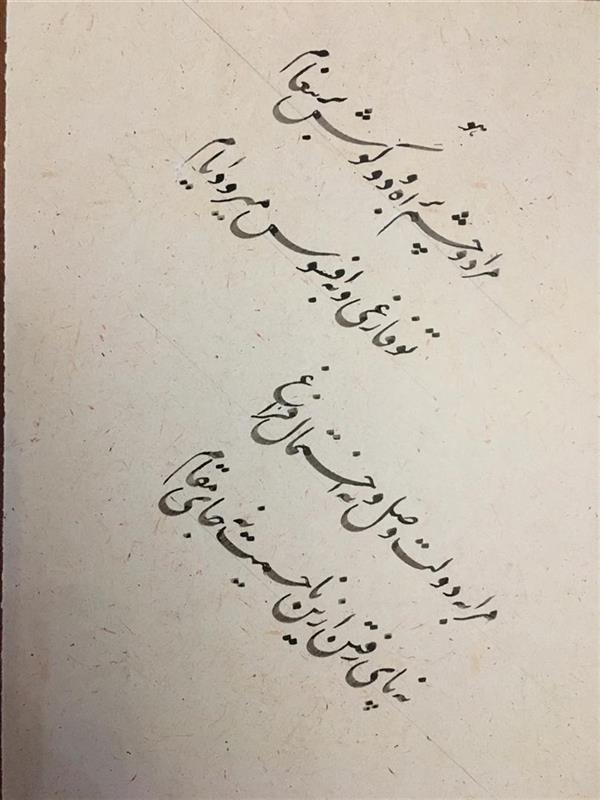 هو
مرا دو چشم براه و دو گوش بر پیغام
تو فارغی و به افسوس میرود ایام
مرا نه دولت وصل و نه احتمال فراغ
نه پای رفتن ازین ناحیت نه جای مقام